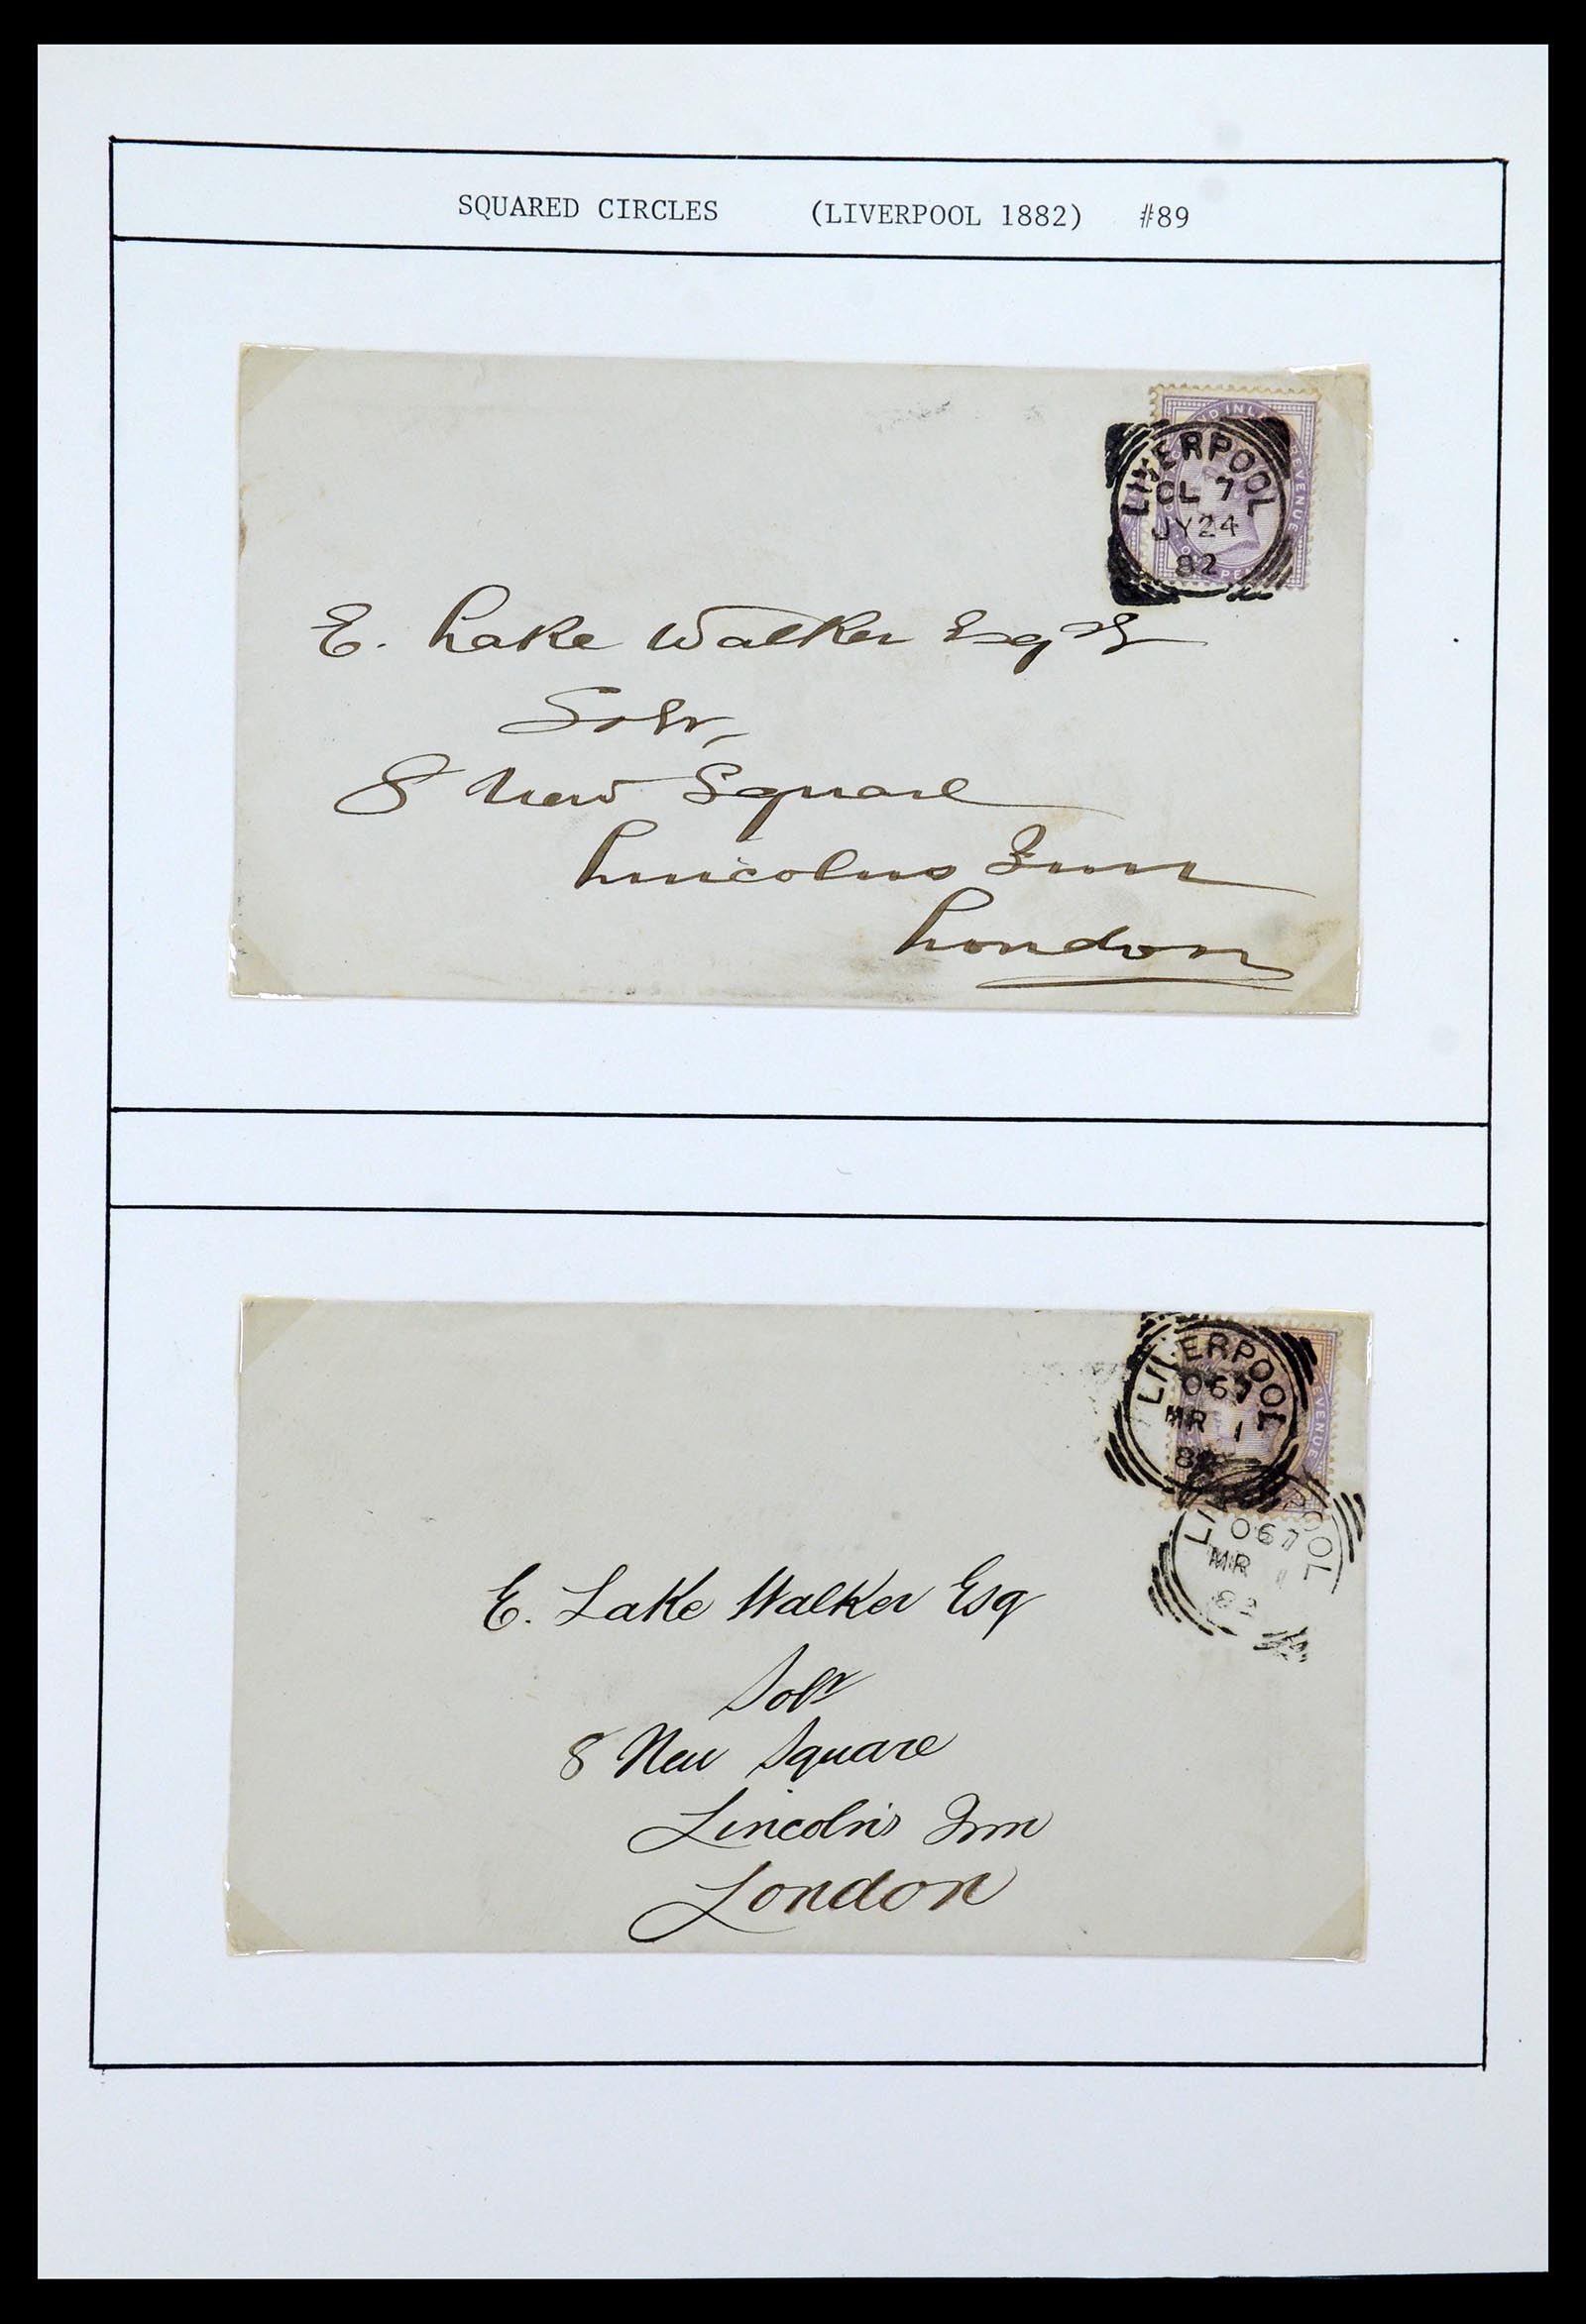 SQUARED CIRCLES (LIVERPOOL 1882) #89
LIVERPOOL
CL 7
JY 24
82
REVENUE
E. Lake Walker Esqre
Solr,
8 New Square
Lincolns Inn
London
LIVERPOOL
067
MR 1
82
LIVERPOOL
067
MR 1
82
E. Lake Walker Esq
Solr
8 New Square
Lincoln's Inn
London